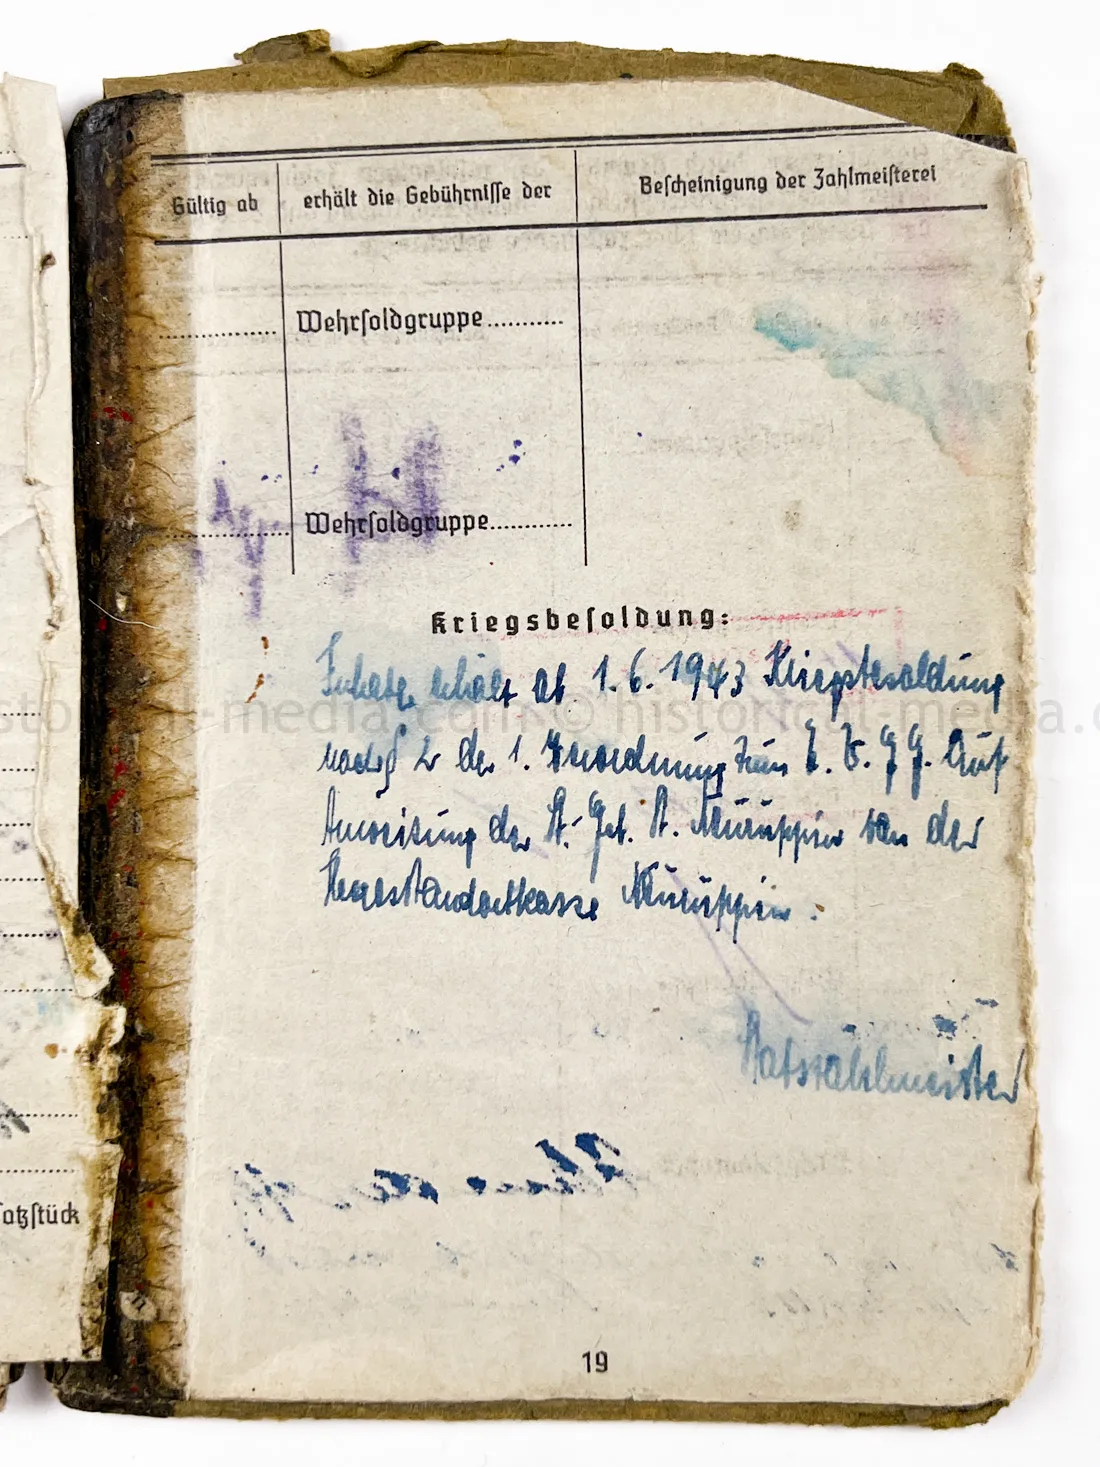 Gültig ab erhält die Gebührnisse der Bescheinigung der Zahlmeisterei
Wehrsoldgruppe
Wehrsoldgruppe
Kriegsbesoldung:
erhält ab 1. 6. 1943 Kriegsbesoldung
nach § 2 der 1. Verordnung zum E. W. G G. Auf
Anweisung der St. Geb. St. Neuruppin von der
Heeresstandortkasse Neuruppin.
Stabszahlmeister
19
atzstück
historical-media.com © historical-media.c